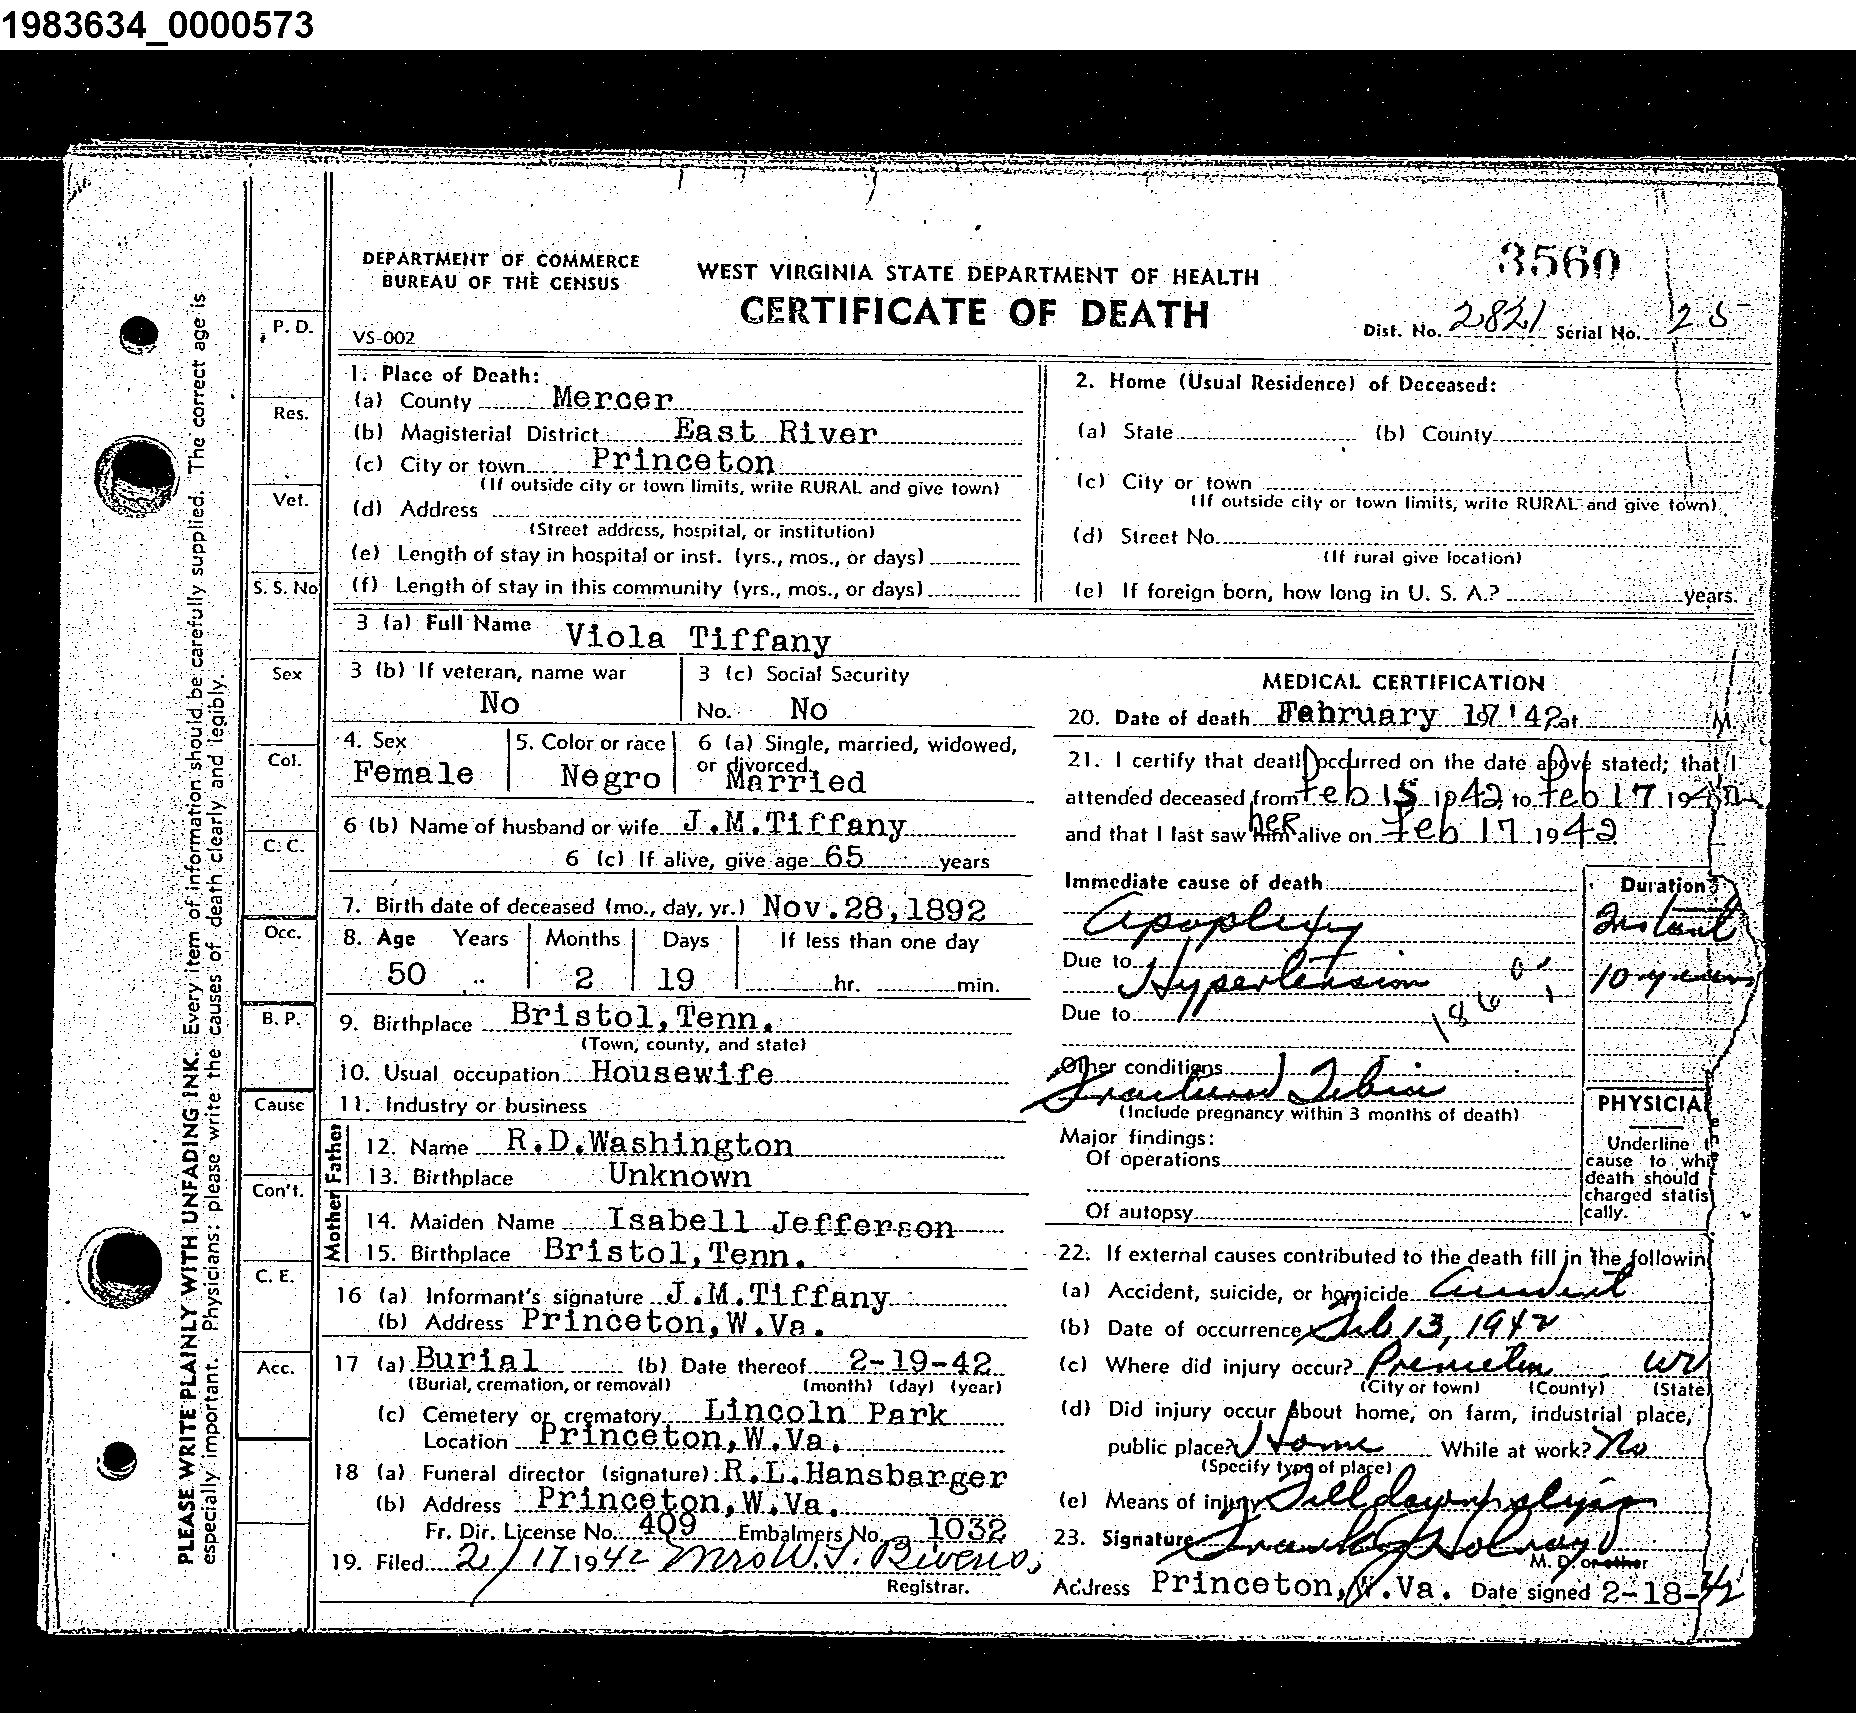 1983634_0000573
DEPARTMENT OF COMMERCE
BUREAU OF THE CENSUS
WEST VIRGINIA STATE DEPARTMENT OF HEALTH
CERTIFICATE OF DEATH
3560
VS-002
Dist. No. 2821 Serial No. 25
PLEASE WRITE PLAINLY WITH UNFADING INK. Every item of information should be carefully supplied. The correct age is
especially important. Physicians: please write the causes of death clearly and legibly.
P. D.
Res.
Vet.
S. S. No
Sex
Col.
C. C.
Occ.
B. P.
Cause
Con't.
C. E.
Acc.
1. Place of Death:
(a) County Mercer
(b) Magisterial District East River
(c) City or town Princeton
(If outside city or town limits, write RURAL and give town)
(d) Address
(Street address, hospital, or institution)
(e) Length of stay in hospital or inst. (yrs., mos., or days)
(f) Length of stay in this community (yrs., mos., or days)
2. Home (Usual Residence) of Deceased:
(a) State (b) County
(c) City or town
(If outside city or town limits, write RURAL and give town)
(d) Street No.
(If rural give location)
(e) If foreign born, how long in U. S. A.? years.
3 (a) Full Name Viola Tiffany
3 (b) If veteran, name war
No
3 (c) Social Security
No. No
4. Sex
Female
5. Color or race
Negro
6 (a) Single, married, widowed,
or divorced.
Married
6 (b) Name of husband or wife J.M.Tiffany
6 (c) If alive, give age 65 years
7. Birth date of deceased (mo., day, yr.) Nov.28,1892
8. Age Years Months Days If less than one day
50 2 19 hr. min.
9. Birthplace Bristol,Tenn.
(Town, county, and state)
10. Usual occupation Housewife
11. Industry or business
Father
12. Name R.D.Washington
13. Birthplace Unknown
Mother
14. Maiden Name Isabell Jefferson
15. Birthplace Bristol,Tenn.
16 (a) Informant's signature J.M.Tiffany
(b) Address Princeton,W.Va.
17 (a) Burial (b) Date thereof 2-19-42
(Burial, cremation, or removal) (month) (day) (year)
(c) Cemetery or crematory Lincoln Park
Location Princeton,W.Va.
18 (a) Funeral director (signature) R.L.Hansbarger
(b) Address Princeton,W.Va.
Fr. Dir. License No. 409 Embalmers No. 1032
19. Filed 2/17 1942 Mrs W.T. Bivens,
Registrar.
MEDICAL CERTIFICATION
20. Date of death February 17 '42 at M
21. I certify that death occurred on the date above stated; that I
attended deceased from Feb 15 1942 to Feb 17 1942
and that I last saw him her alive on Feb 17 1942
Immediate cause of death Duration
Apoplexy Instant
Due to
Hypertension 10 years
Due to
Other conditions
Fractured Tibia
(Include pregnancy within 3 months of death)
Major findings:
Of operations
Of autopsy
PHYSICIA
Underline
cause to whi
death should
charged statis
cally.
22. If external causes contributed to the death fill in the followin
(a) Accident, suicide, or homicide Accident
(b) Date of occurrence Feb 13, 1942
(c) Where did injury occur? Princeton WV
(City or town) (County) (State)
(d) Did injury occur about home, on farm, industrial place,
public place? Home While at work? No
(Specify type of place)
(e) Means of injury Fell down
23. Signature
M. D. or other
Address Princeton,W.Va. Date signed 2-18-42